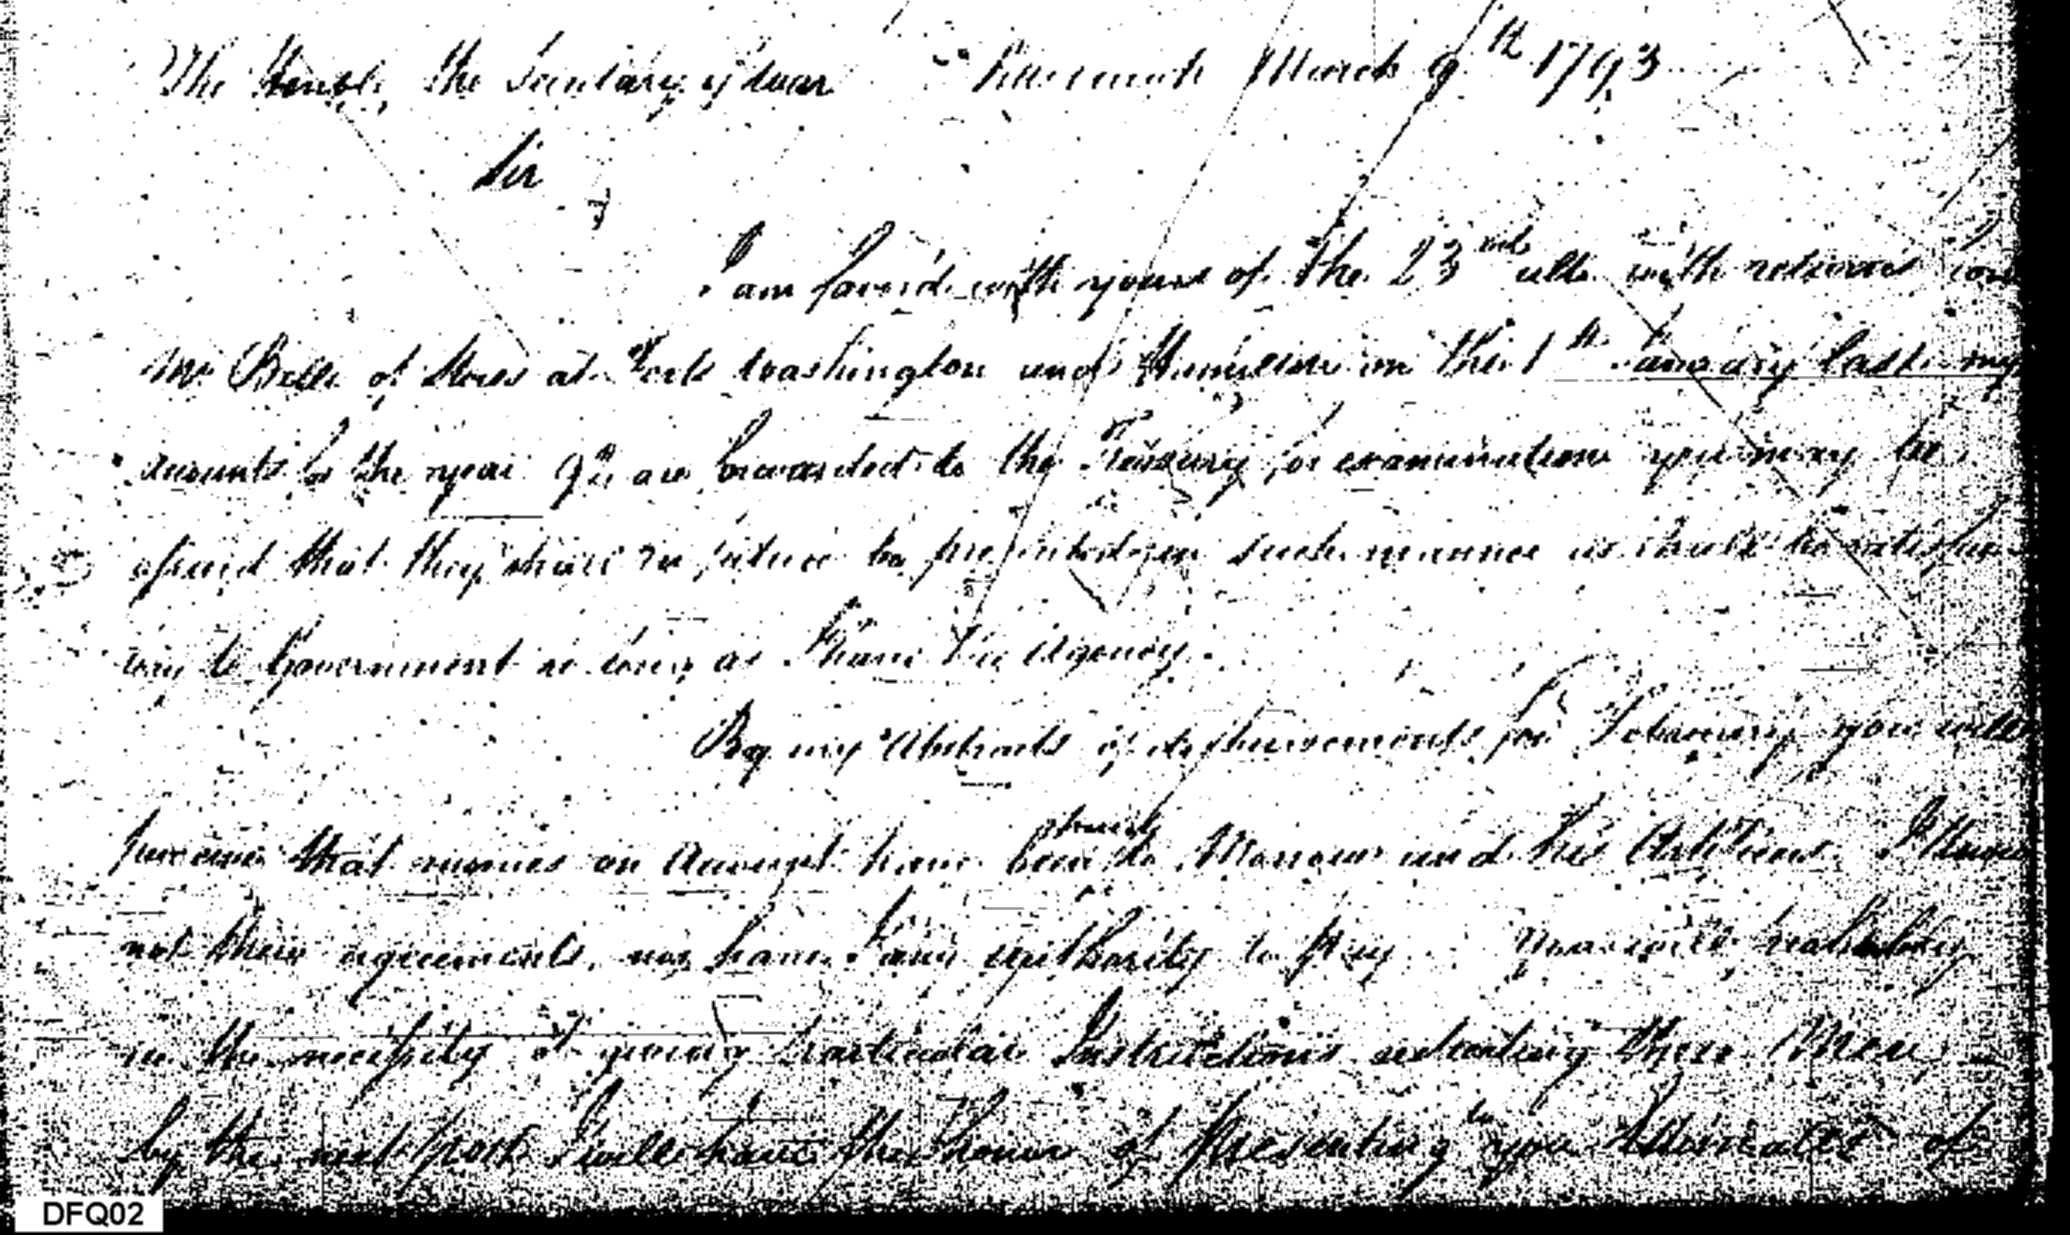 The Honble. the Secretary of War Savannah March 9th 1793
Sir
I am favor'd with yours of the 23rd ulto. with returns
Mr Belli of Stores at Forts Washington and Hamilton on the 1st January last. my
accounts for the year 92 are forwarded to the Treasury for examination you may be
assured that they shall in future be presented in such manner as shall be satisfac
tory to Government so long as I have the Agency.
By my Abstracts of disbursements for February you will
perceive that monies on Account have been to Morrow and his Artificers. I have
not their agreements, nor have I any authority to pay. You will probably
see the necessity of giving particular Instructions these Men,
by the next post I will have the honor of presenting to you Estimates of
DFQ02